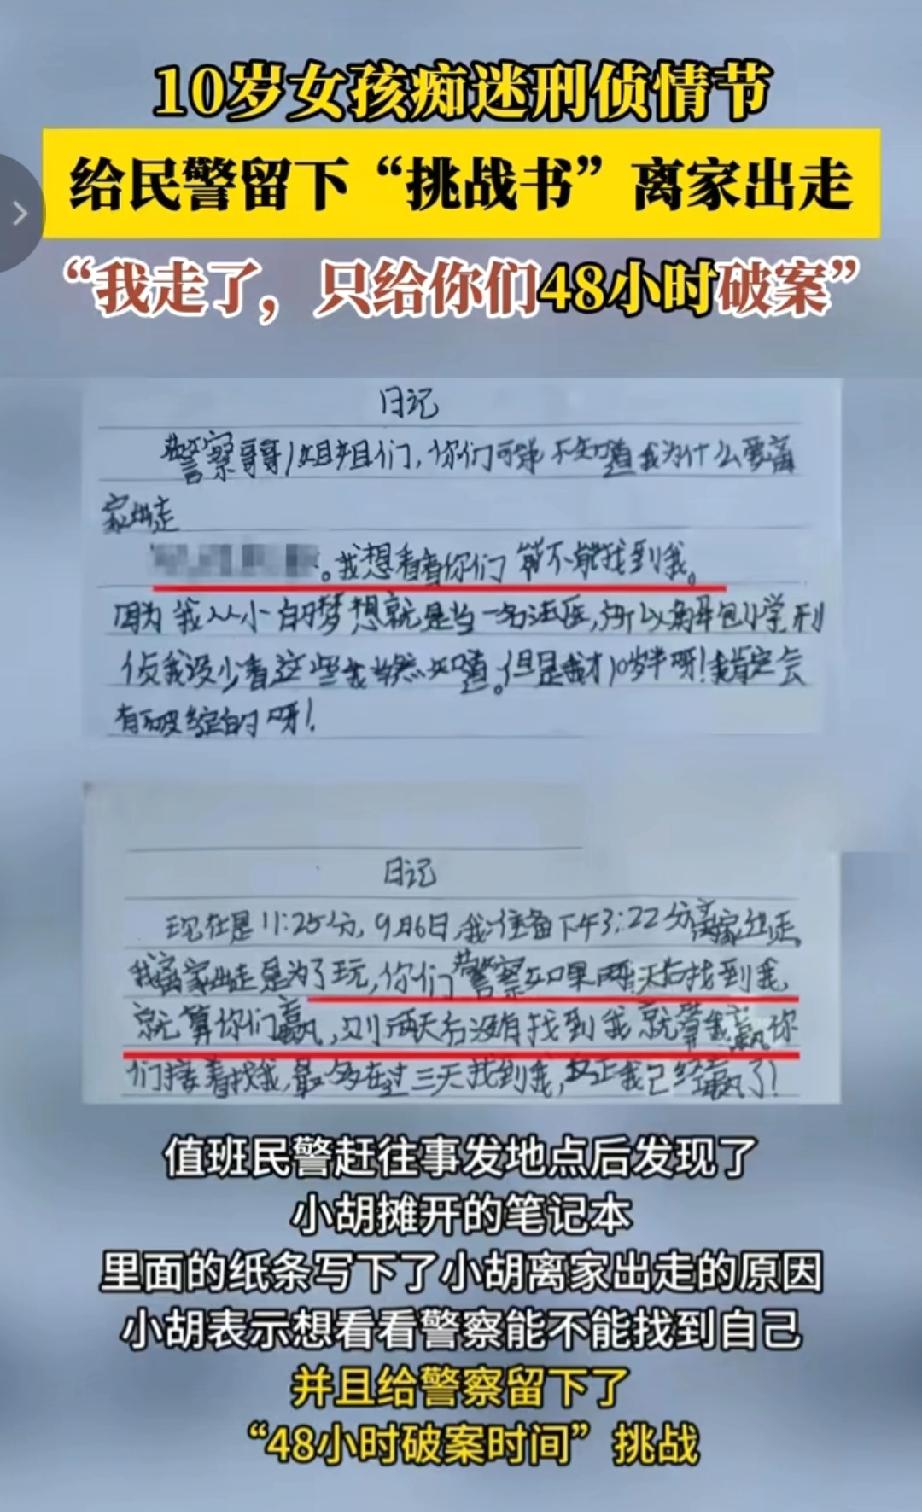 10岁女孩痴迷刑侦情节
给民警留下“挑战书”离家出走
“我走了，只给你们48小时破案”
日记
警察哥哥/姐姐们，你们可能不知道我为什么要离
家出走
。我想看看你们能不能找到我。
因为我从小的梦想就是当一名法医，所以
侦我没少看这些我当然知道。但是我才10岁半呀！我肯定会
有破绽的呀！
日记
现在是11:25分，9月6日，我准备下午3:22分离家出走
我离家出走是为了玩，你们警察如果两天后找到我，
就算你们赢，则两天后没有找到我就算我赢，你
们接着找我，最多在过三天找到我，反正我已经赢了！
值班民警赶往事发地点后发现了
小胡摊开的笔记本
里面的纸条写下了小胡离家出走的原因
小胡表示想看看警察能不能找到自己
并且给警察留下了
“48小时破案时间”挑战